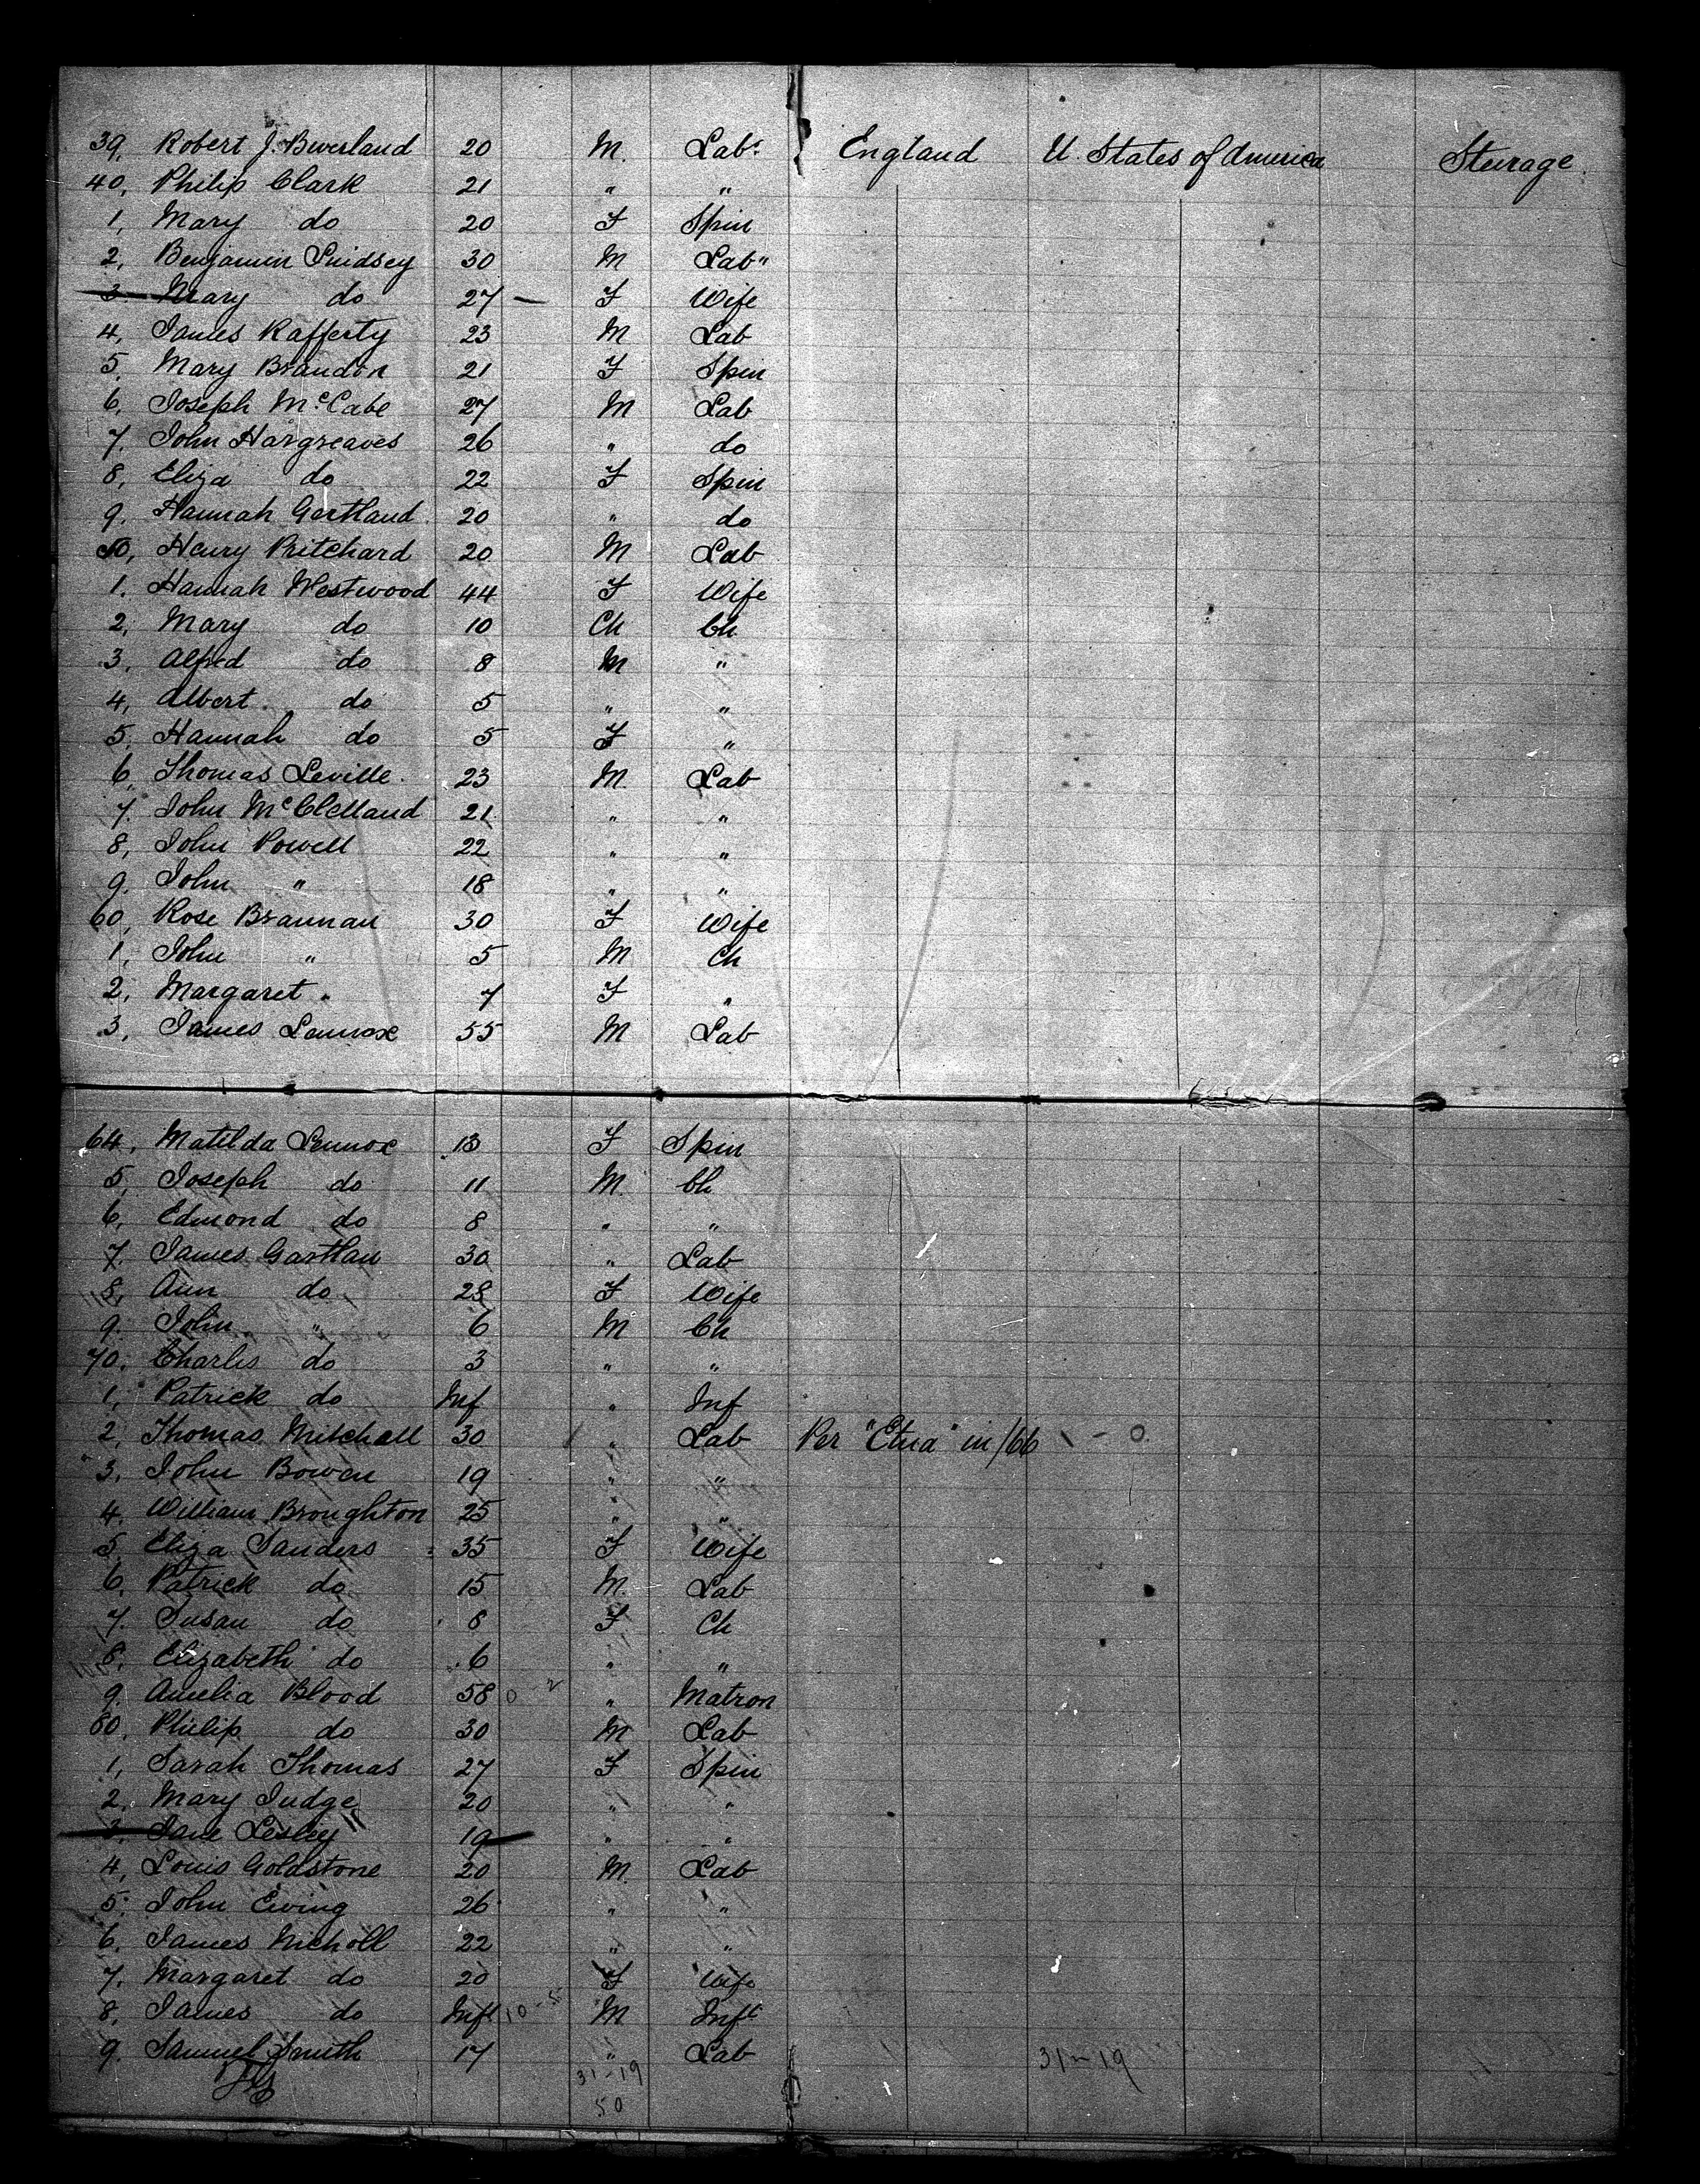 39, Robert J. Bwerland 20 M. Labr England U. States of America Steerage.
40, Philip Clark 21 " "
1, Mary do 20 F Spin
2, Benjamin Lindsey 30 M Lab"
3. Mary do 27 — F Wife
4, James Rafferty 23 M Lab
5, Mary Brandon 21 F Spin
6, Joseph McCabe 27 M Lab
7. John Hargreaves 26 " do
8, Eliza do 22 F Spin
9. Hannah Gertland. 20 " do
50, Henry Pritchard 20 M Lab
1. Hannah Westwood 44 F Wife
2, Mary do 10 Ch Ch
3. Alfred do 8 M "
4, Albert. do 5 " "
5, Hannah do 5 F "
6, Thomas Leville. 23 M. Lab
7. John McClelland 21 " "
8, John Powell 22 " "
9. John " 18 " "
60, Rose Brannan 30 F Wife
1, John " 5 M Ch
2, Margaret " 7 F "
3, James Lennox 55 M Lab
64, Matilda Lennox 13 F Spin
5, Joseph do 11 M. Ch
6, Edmond do 8 " "
7. James Gartlan 30 " Lab
8, Ann do 28 F Wife
9. John " 6 M Ch
70, Charles do 3 " "
1, Patrick do Inf " Inf
2, Thomas Mitchell 30 " Lab Per "Etna" in /66 \ - 0
3, John Bowen 19 " "
4, William Broughton 25 " "
5, Eliza Sanders 35 F Wife
6, Patrick do 15 M. Lab
7. Susan do 8 F Ch
8. Elizabeth do 6 " "
9. Amelia Blood 58 0 - 2 " Matron
80, Philip do 30 M Lab
1, Sarah Thomas 27 F Spin
2, Mary Judge 20 " "
3. Jane Lesley 19 — " "
4, Louis Goldstone 20 M. Lab
5, John Ewing 26 " "
6, James Nicholl 22 " "
7, Margaret do 20 F Wife
8, James do Inft 10 - 5 M Inft
9. Samuel Smith 17 " Lab
31 - 19 31 - 19
50